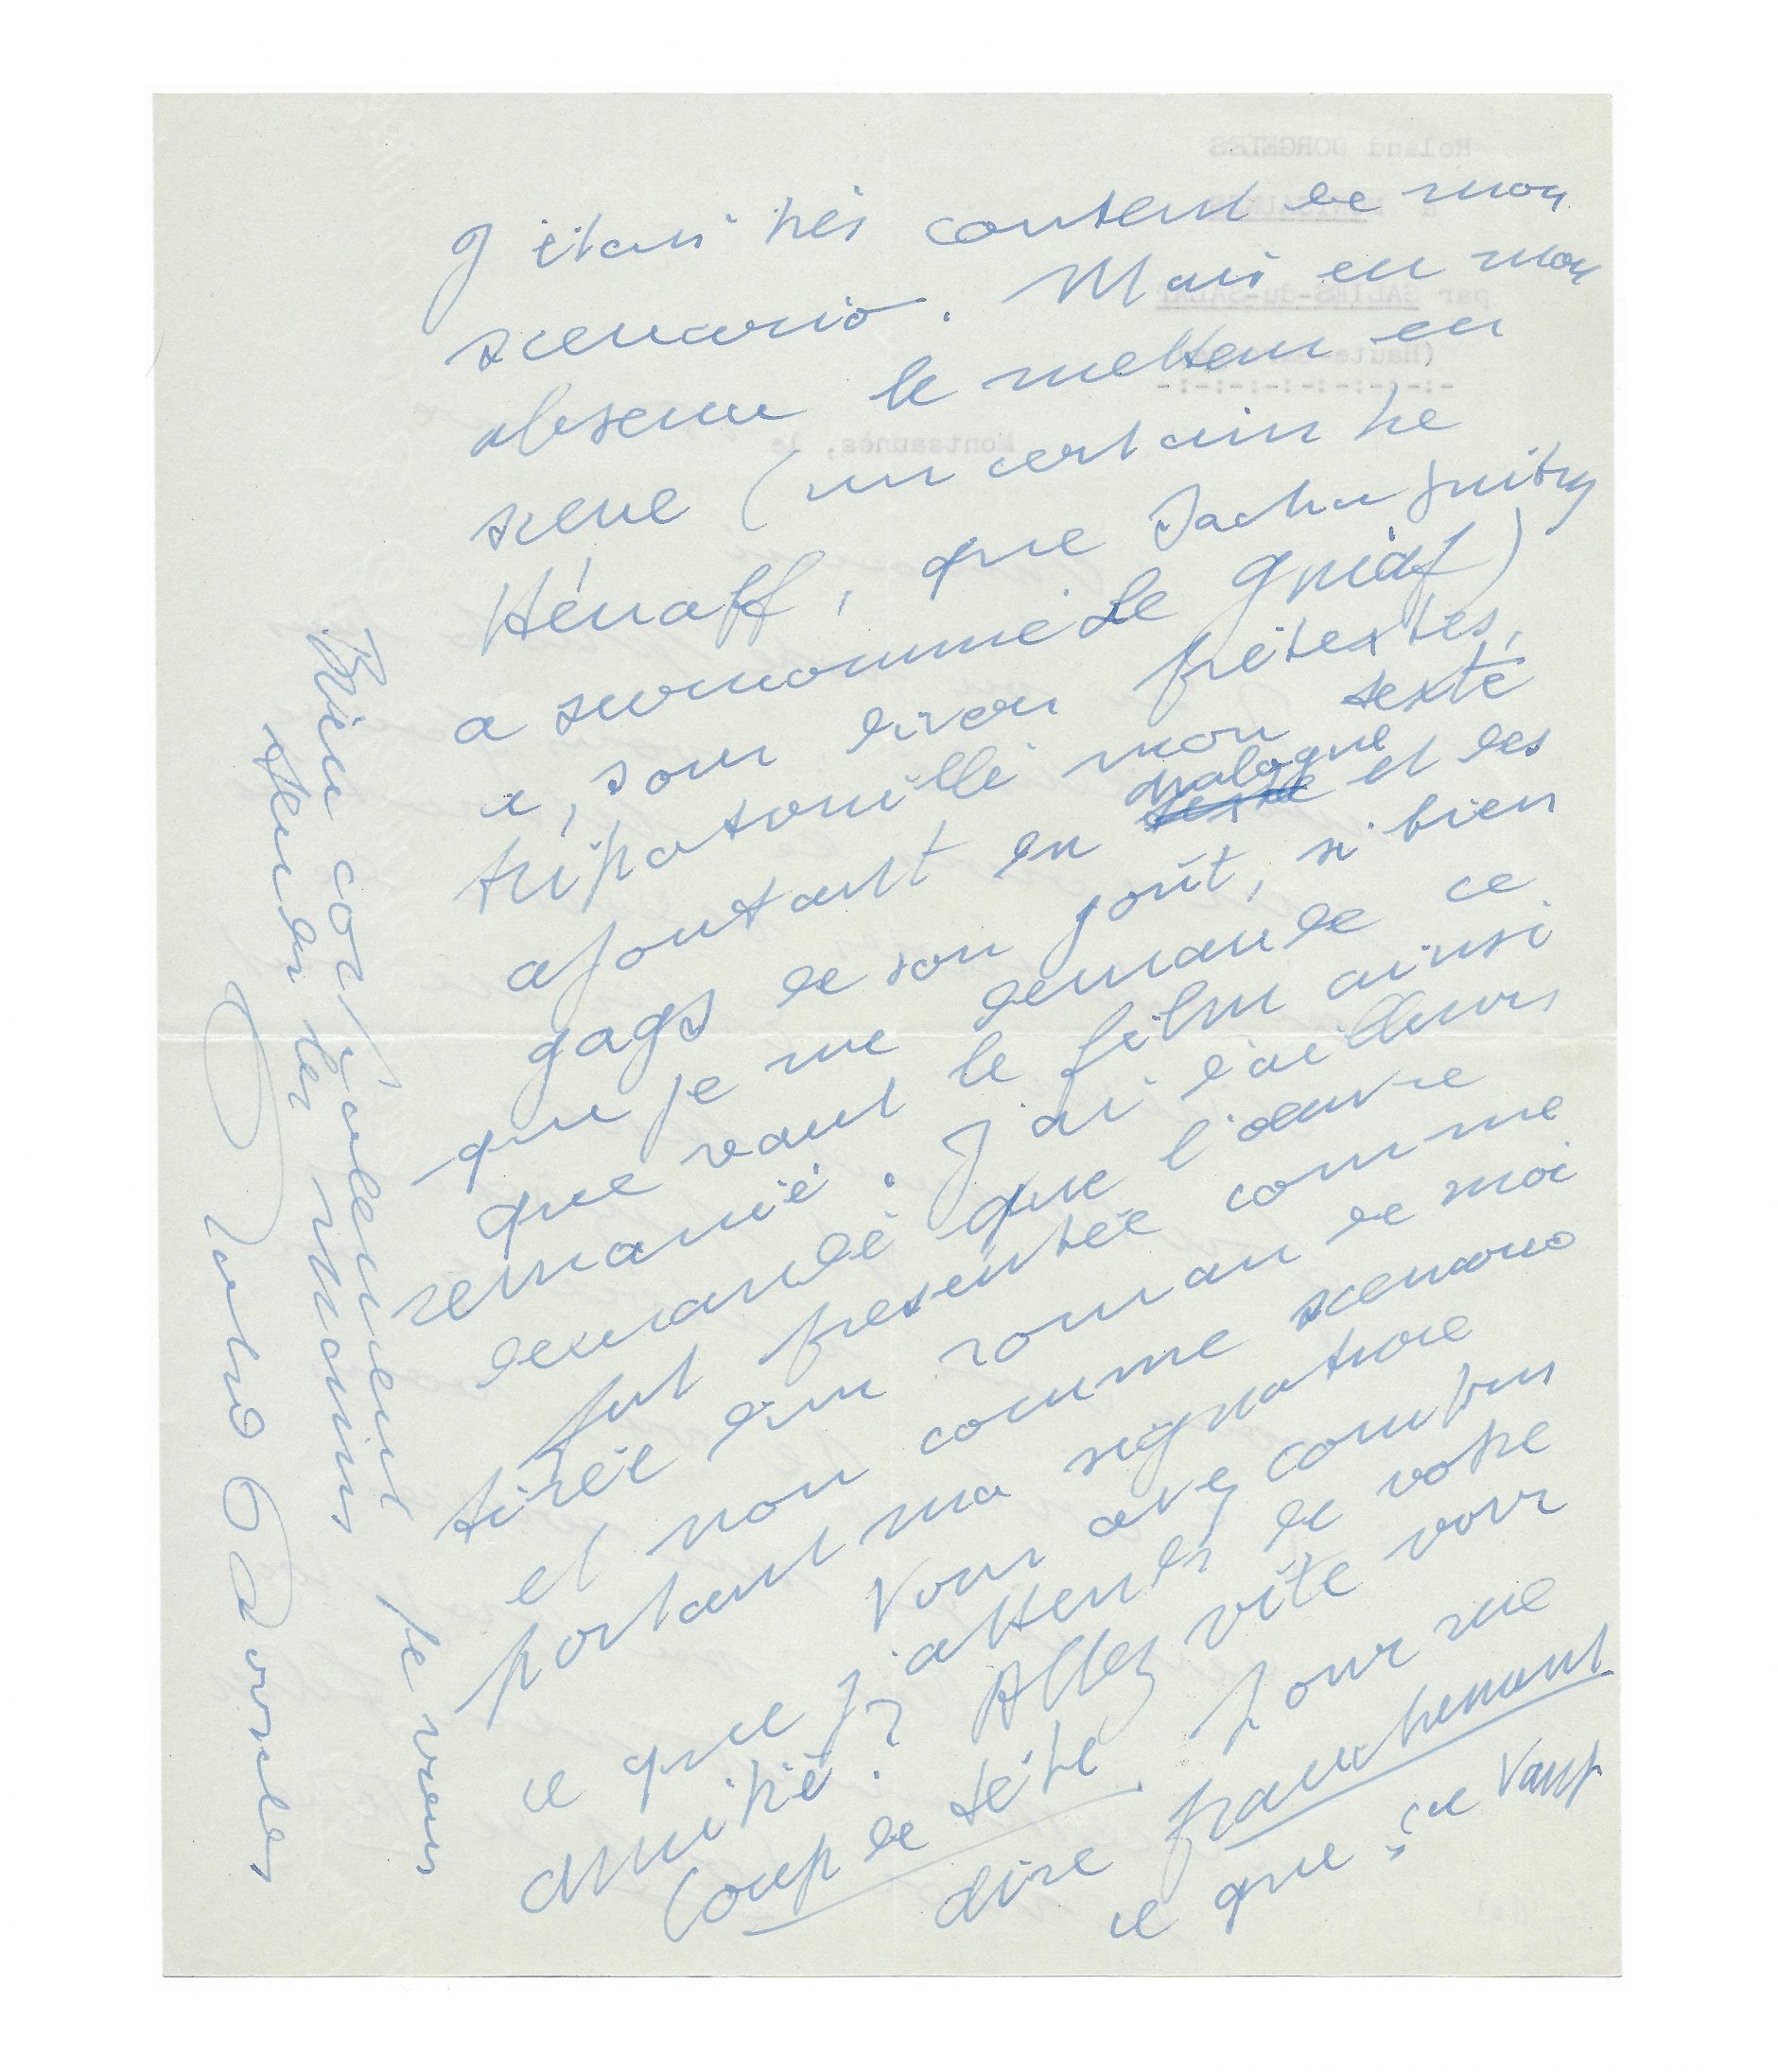 J'étais très content de mon
scenario. Mais en mon
absence le metteur en
scène (un certain Le
Hénaff, que Sacha Guitry
a surnommé Le gniaf)
a, sous divers prétextes,
tripatouillé mon texte
ajoutant du dialogue et des
gags de son goût, si bien
que je me demande ce
que vaut le film ainsi
remanié. J'ai d'ailleurs
demandé que l'œuvre
fut présentée comme
tirée d'un roman de moi
et non comme scenario
portant ma signature
Vous avez compris
ce que j'attends de votre
amitié ? Allez vite voir
Coup de tête pour me
dire franchement
ce que ça vaut
Bien cordialement je vous
tends les mains
Roland Dorgelès
Roland DORGELES
par SALIES-du-SALAT
(Haute-
-:-:-:-:-:-:-:-
Montsaunès, le